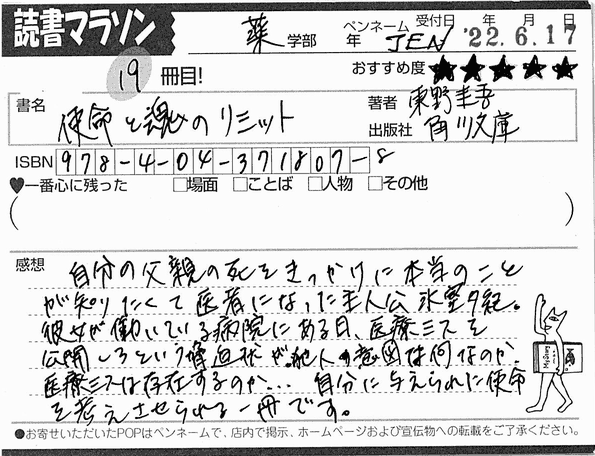 読書マラソン
薬 学部 年 ペンネーム JEN 受付日 '22年 6月 17日
19 冊目!
おすすめ度 ★★★★★
書名 使命と魂のリミット
著者 東野圭吾
出版社 角川文庫
ISBN 978-4-04-371807-8
♥一番心に残った □場面 □ことば □人物 □その他
( )
感想 自分の父親の死をきっかけに本当のこと
が知りたくて医者になった主人公 氷室夕紀。
彼女が働いている病院にある日、医療ミスを
公開しろという脅迫状が。犯人の意図は何なのか.
医療ミスは存在するのか... 自分に与えられた使命
を考えさせられる一冊です。
●お寄せいただいたPOPはペンネームで、店内で掲示、ホームページおよび宣伝物への転載をご了承ください。